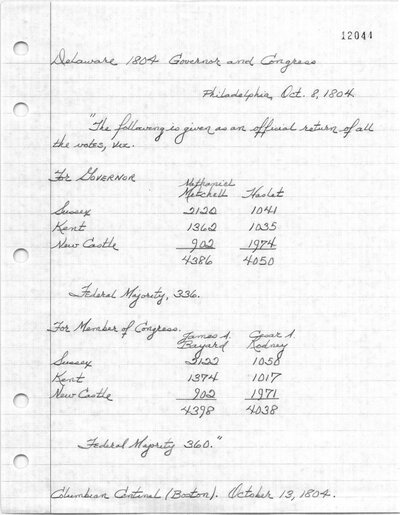 12044
Delaware 1804 Governor and Congress
Philadelphia, Oct. 8, 1804.
"The following is given as an official return of all
the votes, viz.
For GOVERNOR Nathaniel
Mitchell Haslet
Sussex 2122 1041
Kent 1362 1035
New Castle 902 1974
4386 4050
Federal Majority, 336.
For Member of Congress. James A. Cesar A.
Bayard Rodney
Sussex 2122 1050
Kent 1374 1017
New Castle 902 1971
4398 4038
Federal Majority 360."
Columbian Centinel (Boston). October 13, 1804.